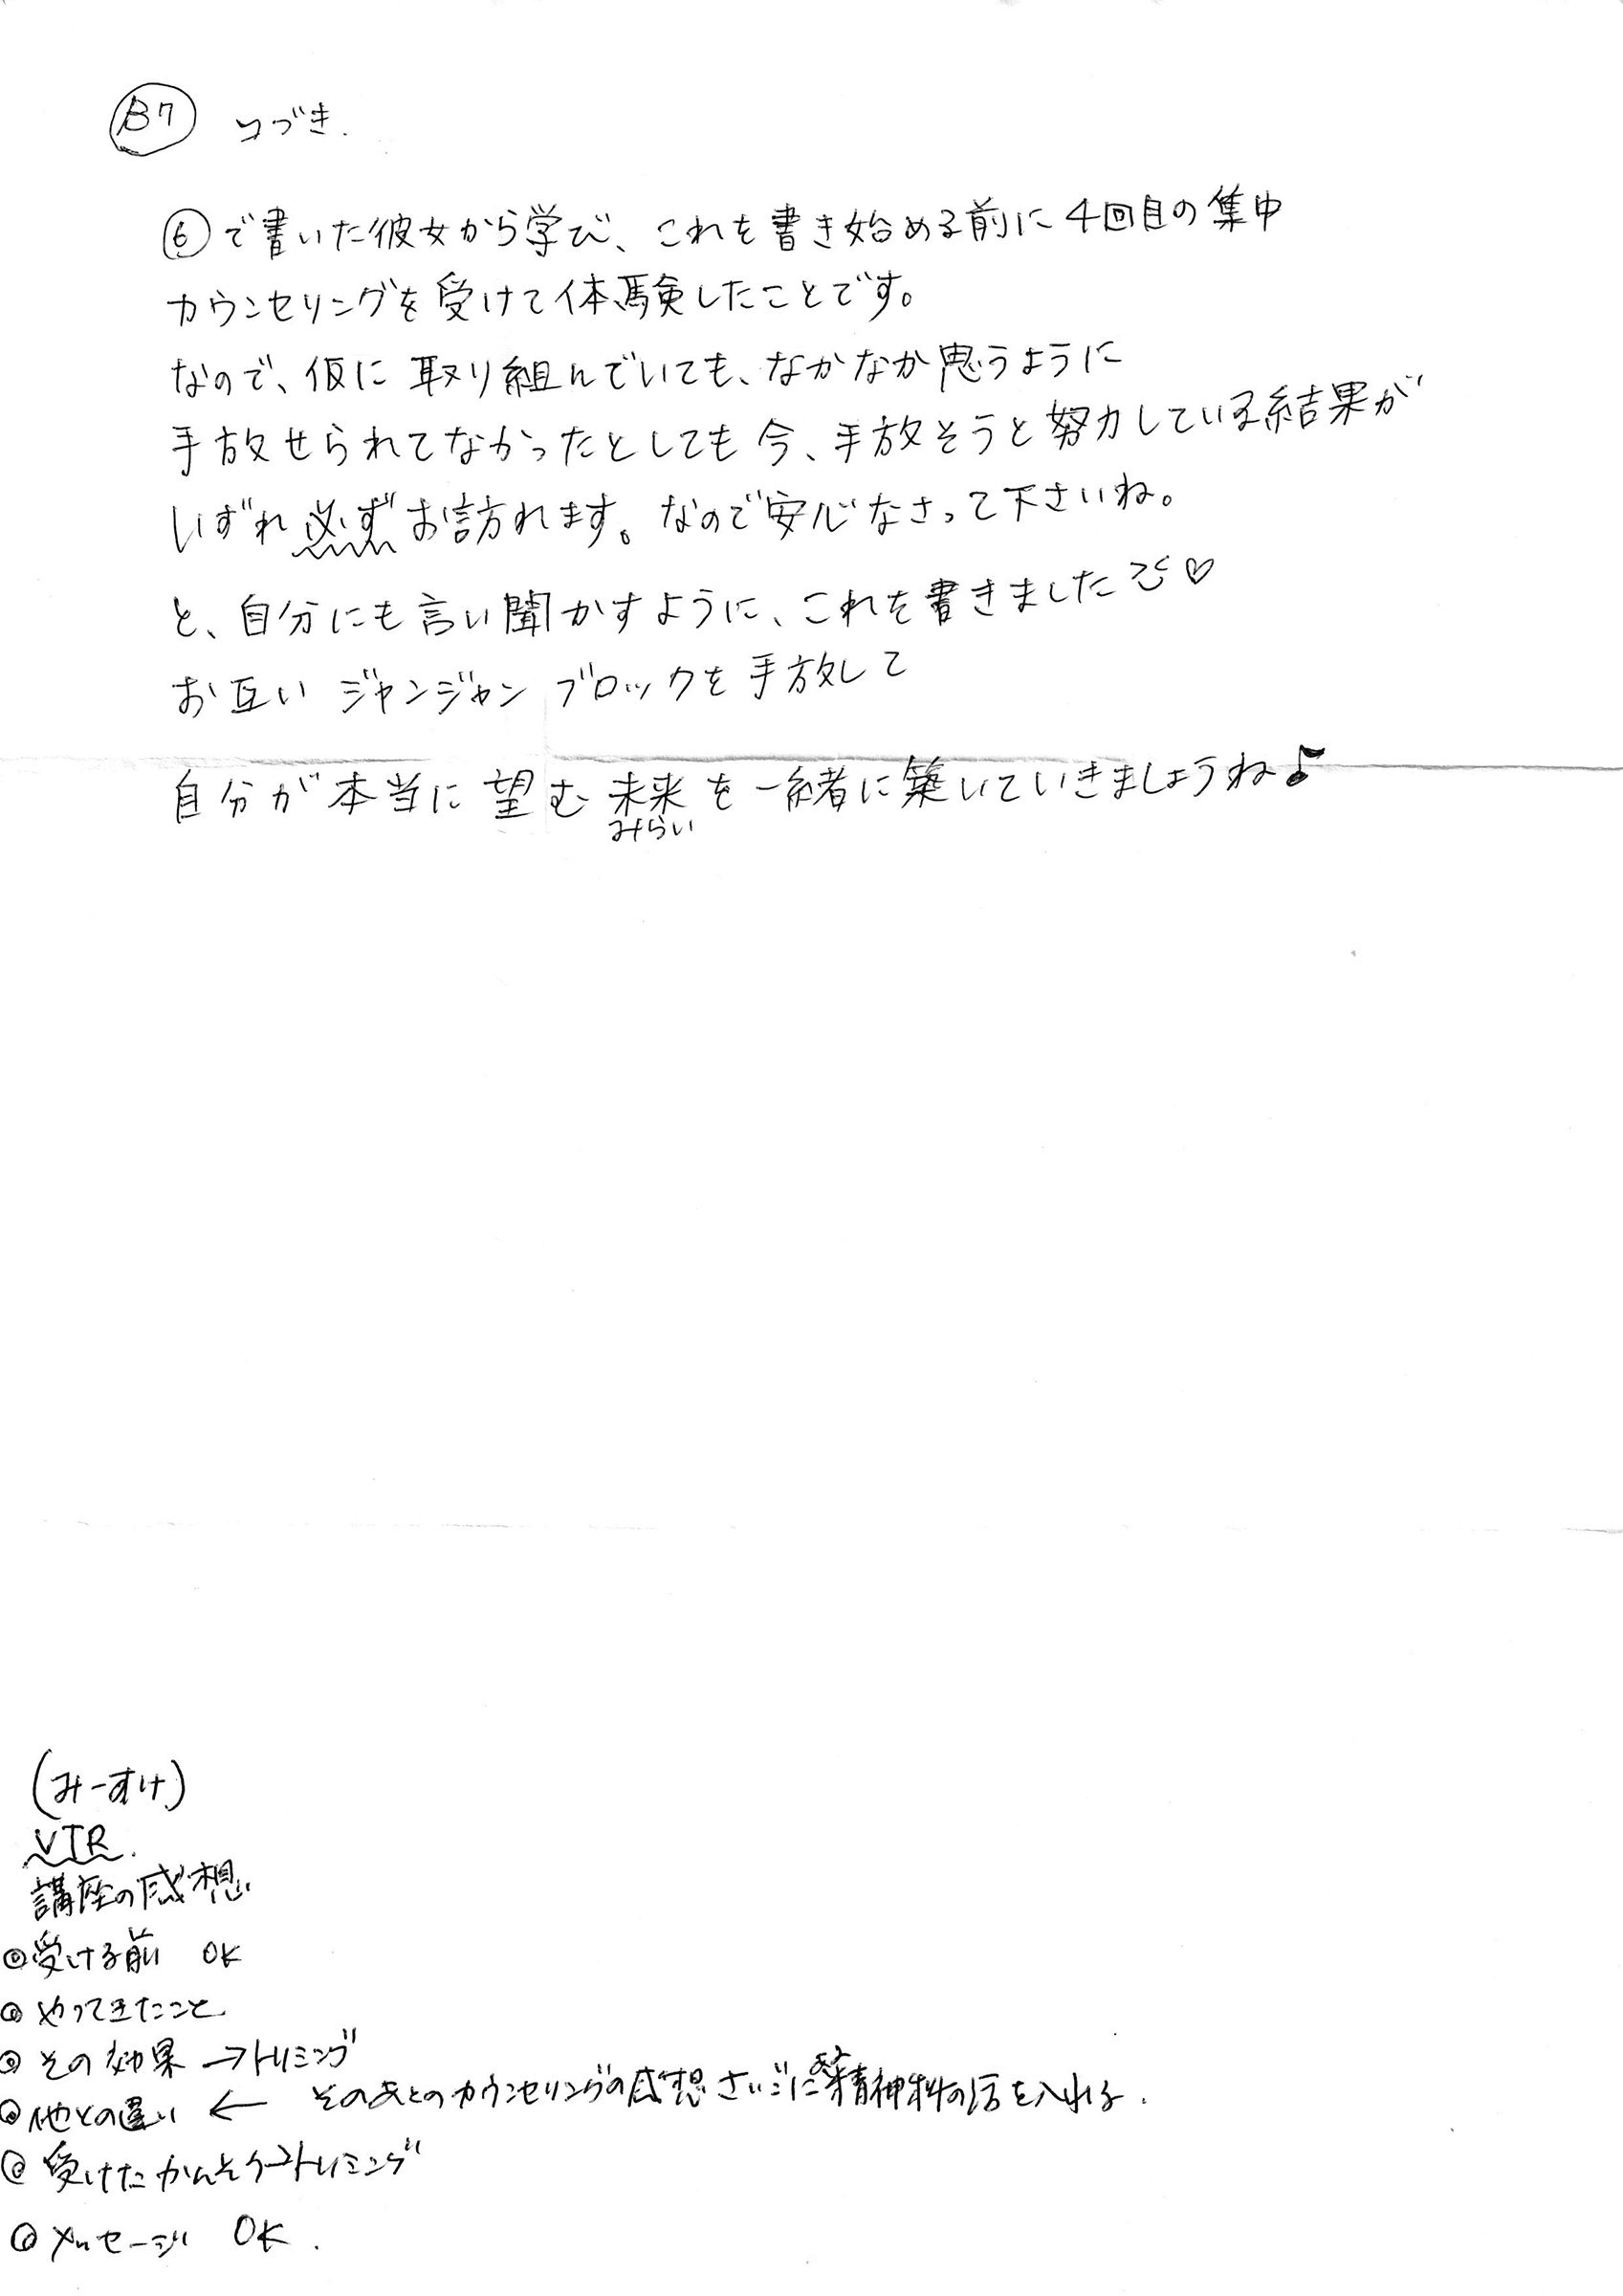 B7 つづき.
⑥で書いた彼女から学び、これを書き始める前に4回目の集中
カウンセリングを受けて体験したことです。
なので、仮に取り組んでいても、なかなか思うように
手放せられてなかったとしても今、手放そうと努力している結果が
いずれ必ずお訪れます。なので安心なさって下さいね。
と、自分にも言い聞かすように、これを書きました♡
お互いジャンジャンブロックを手放して
自分が本当に望む未来を一緒に築いていきましょうね♪
みらい
(みーすけ)
VTR.
講座の感想
◎受ける前 OK
◎やってきたこと
◎その効果→トリミング
◎他との違い ← そのあとのカウンセリングの感想さいごに精神科の話を入れる.
◎受けたかんそう→トリミング
◎メッセージ OK.